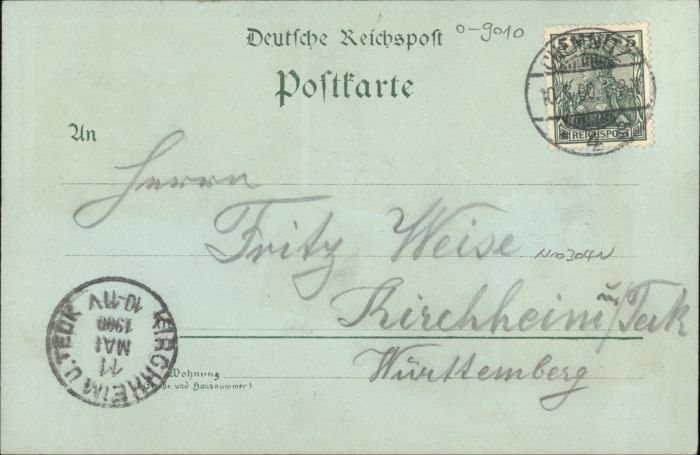 Deutsche Reichspost
o-9010
Postkarte
5 5
REICHSPOST
CHEMNITZ
An
Herrn
Fritz Weise
N10304N
Kirchheim u/Teck
Württemberg
Wohnung
(Straße und Hausnummer)
KIRCHHEIM U. TECK
11
MAI
1900
10-11V